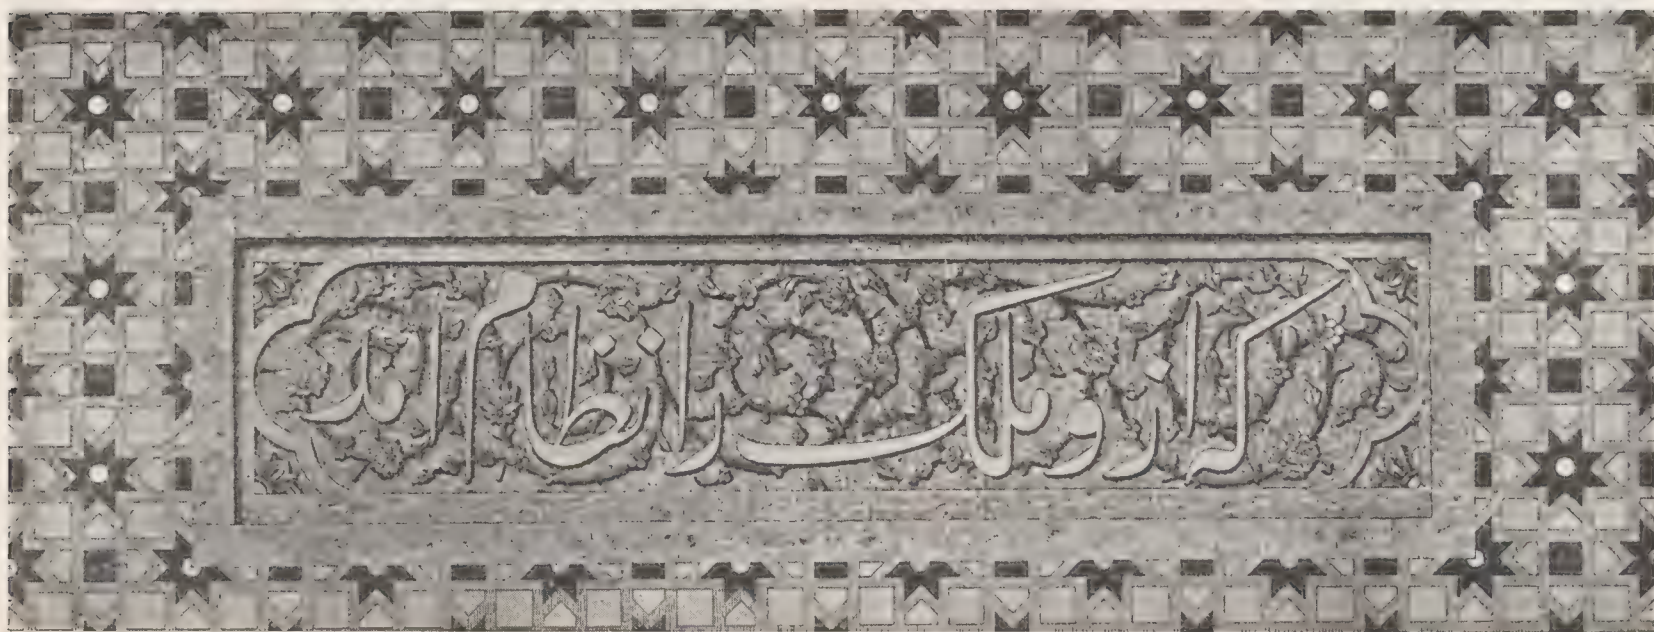 که ازو ملک را نظام آمد